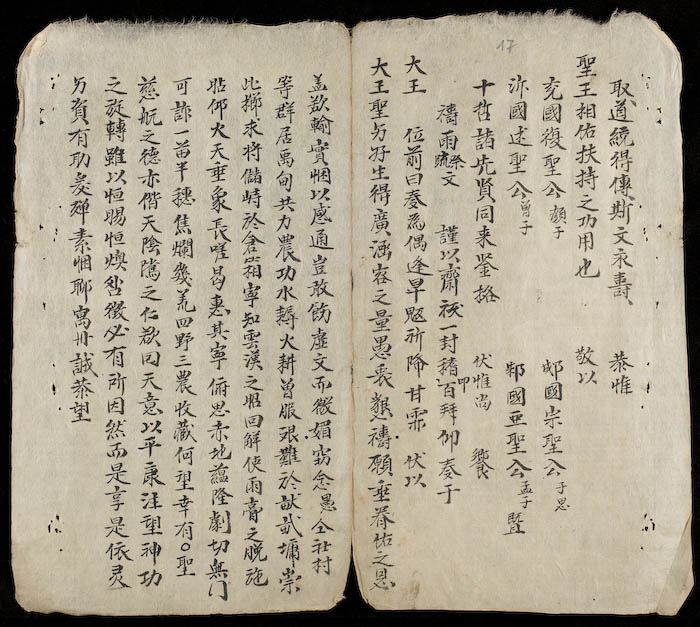 17
取道統得傳斯文永壽　恭惟
聖王相佑扶持之功用也　敬以
兗國復聖公顏子　郕國宗聖公子思
沂國述聖公曾子　鄒國亞聖公孟子暨
十哲諸先賢同来鉴格　伏惟尚饗
禱雨祭疏文　謹以齋祓一封稽叩百拜仰奏于
大王　位前曰奏為偶逢旱魃祈降甘霖　伏以
大王聖方好生得廣涵容之量愚衷懇禱願垂眷佑之恩
盖欲輸實悃以感通豈敢飭虛文而徼媚窃念愚仝社村
等群居禹甸共力農功水耨火耕曾服艰難於畎畝墉崇
比櫛求将儲峙於倉箱寧知雲漢之昭回觧使雨膏之脱施
咕仰火天垂象長嗟曷惠其寧俯思赤地蕴隆劇切無门
可訴一苗半穗焦爛幾荒四野三農收藏何望幸有〇聖
慈航之德亦偕天陰騭之仁欲回天意以平康注望神功
之旋轉雖以恒暘恒燠咎徵必有所因然而是享是依灵
方資有助爰殫素悃聊寓丹誠恭望